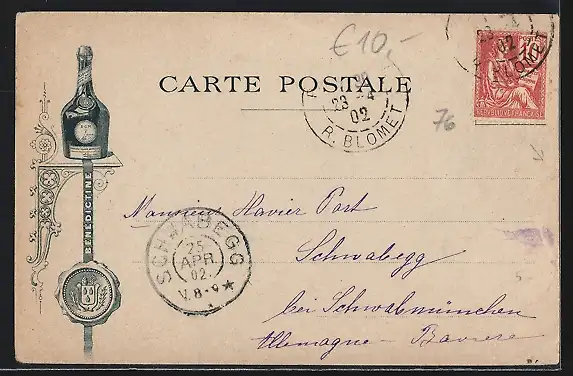 €10,-
CARTE POSTALE
23 4
02
R. BLOMET
23
02
BLOMET
POSTES
RÉPUBLIQUE FRANÇAISE
76
BÉNÉDICTINE
SCHWABEGG
25
APR
02.
V. 8-9
Monsieur Xavier Port
Schwabegg
bei Schwabmünchen
Allemagne - Baviere
5